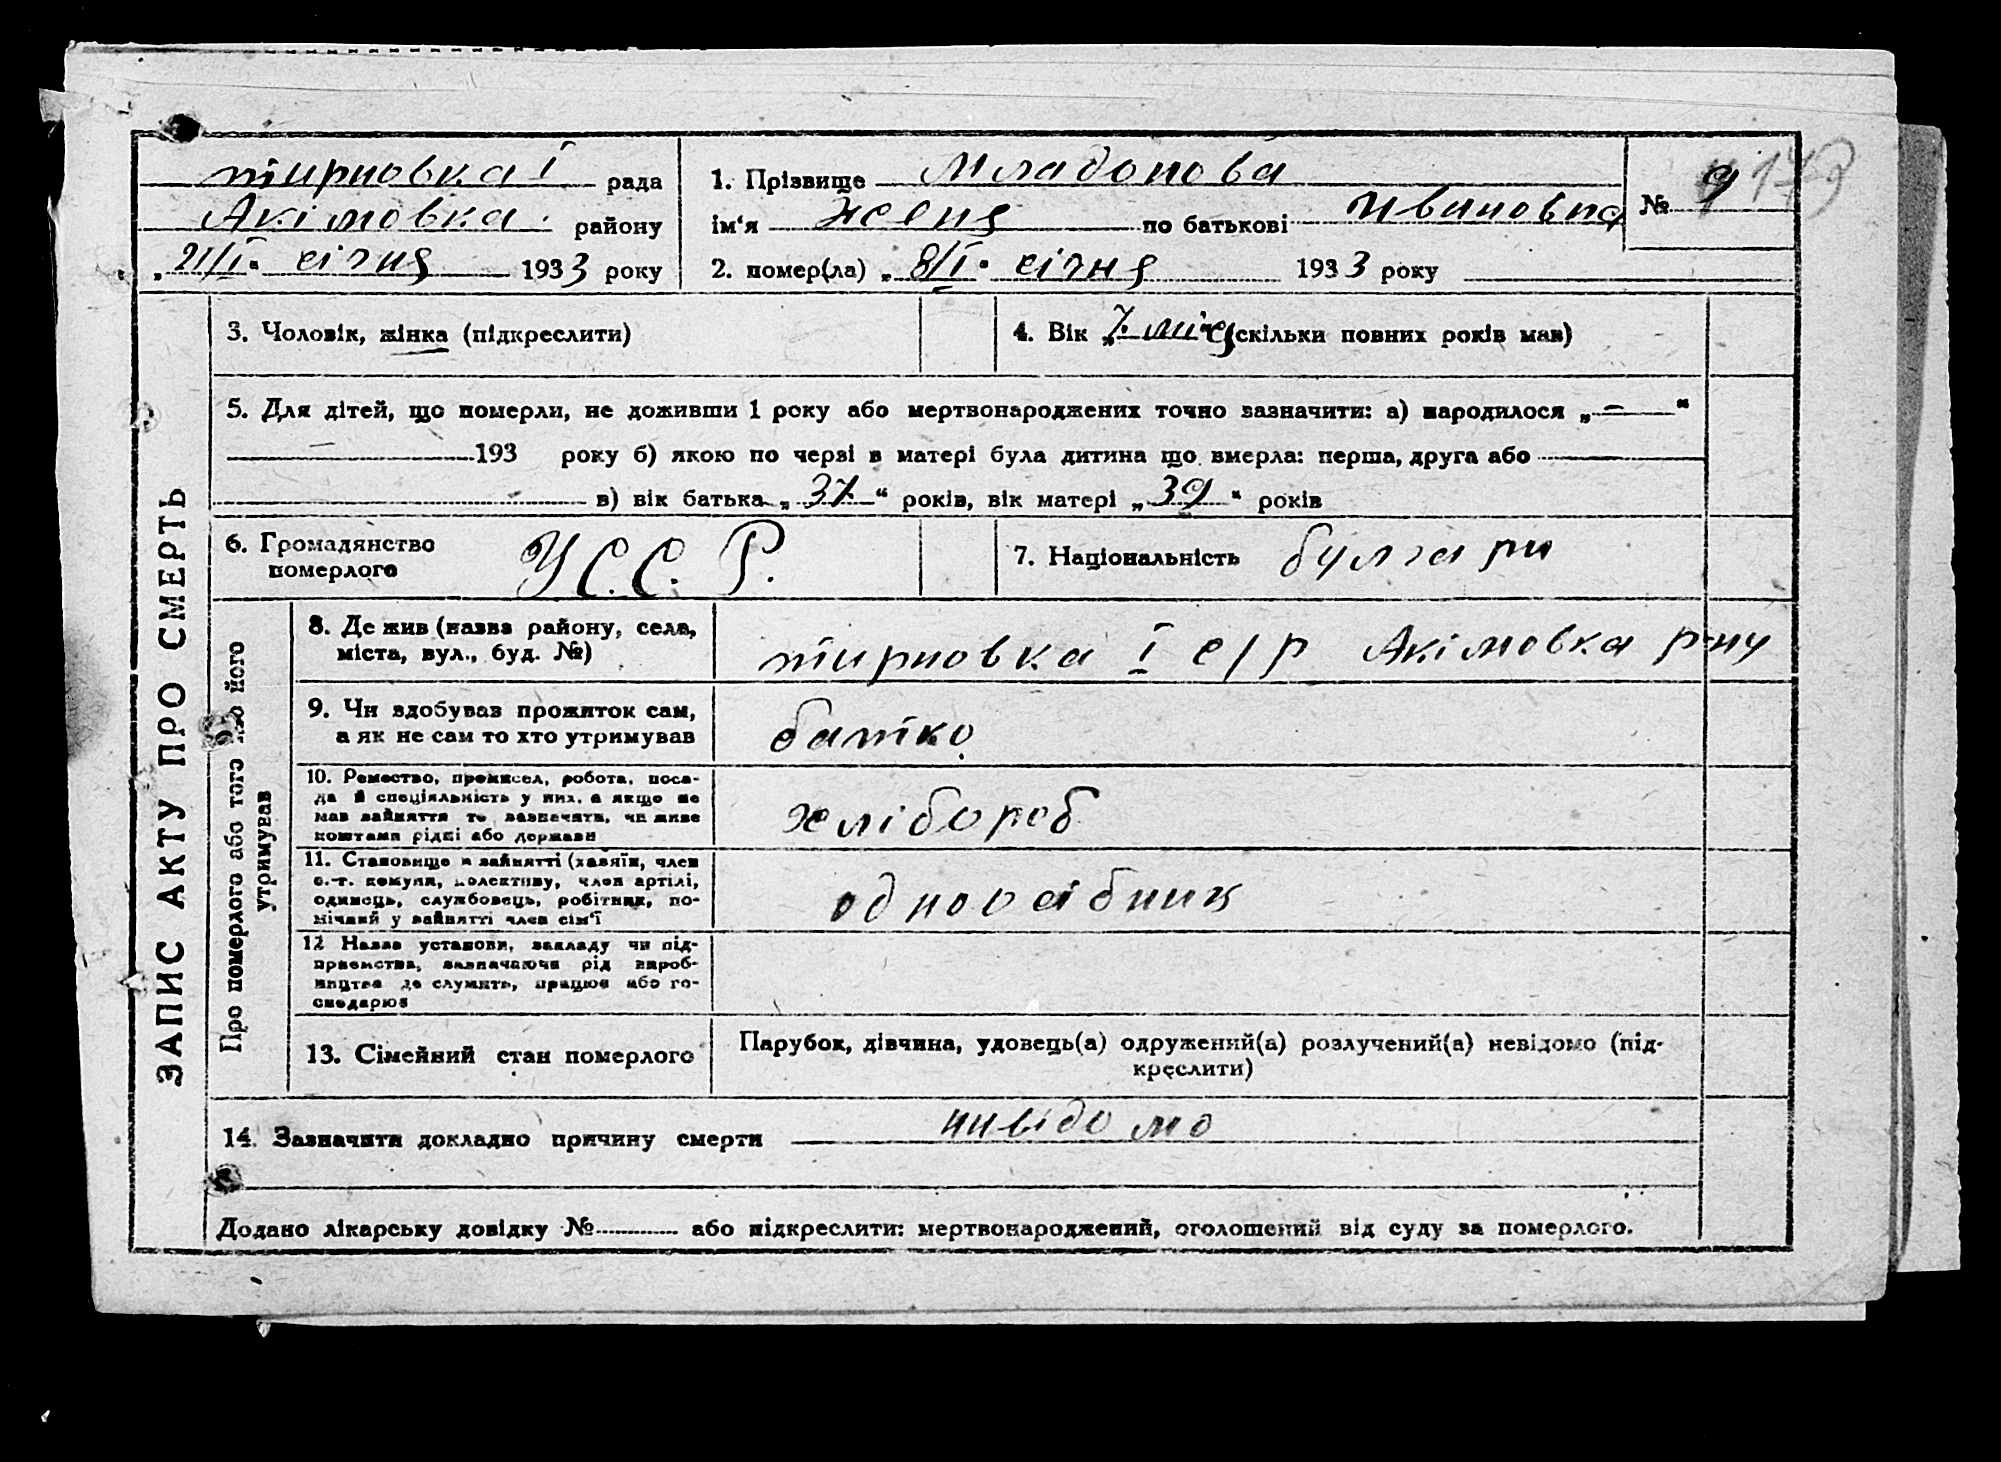 тирновка І рада
Акімовка району
„21/І. січня 1933 року
1. Прізвище Младопова
ім‘я Женя по батькові Ивановна
2. помер(ла) „8/І. січня 1933 року
№ 9
ЗАПИС АКТУ ПРО СМЕРТЬ
3. Чоловік, жінка (підкреслити)
4. Вік „7. міс. (скільки повних років мав)
5. Для дітей, що померли, не доживши 1 року або мертвонароджених точно зазначити: а) народилося „—“
— 193 року б) якою по черзі в матері була дитина що вмерла: перша, друга або
в) вік батька „37“ років, вік матері „39“ років
6. Громадянство
померлого
У.С.С.Р.
7. Національність булгари
Про померлого або того хто його
утримував
8. Де жив (назва району, села,
міста, вул., буд. №)
тирновка І с/р Акімовка р-ну
9. Чи здобував прожиток сам,
а як не сам то хто утримував
батко
10. Ремество, промисел, робота, поса-
да й спеціяльність у них, а якщо не
мав зайняття то зазначити, чи живе
коштами рідні або держави
хлібороб
11. Становище в зайнятті (хазяїн, член
с.-г. комуни, колективу, член артілі,
одинець, службовець, робітник, по-
мічний у зайнятті член сім‘ї
одноосібник
12 Назва установи, закладу чи під-
приємства, зазначаючи рід вироб-
ництва де служить, працює або го-
сподарює
13. Сімейний стан померлого
Парубок, дівчина, удовець(а) одружений(а) розлучений(а) невідомо (під-
креслити)
14. Зазначити докладно причину смерти нивідомо
Додано лікарську довідку № або підкреслити: мертвонароджений, оголошений від суду за померлого.